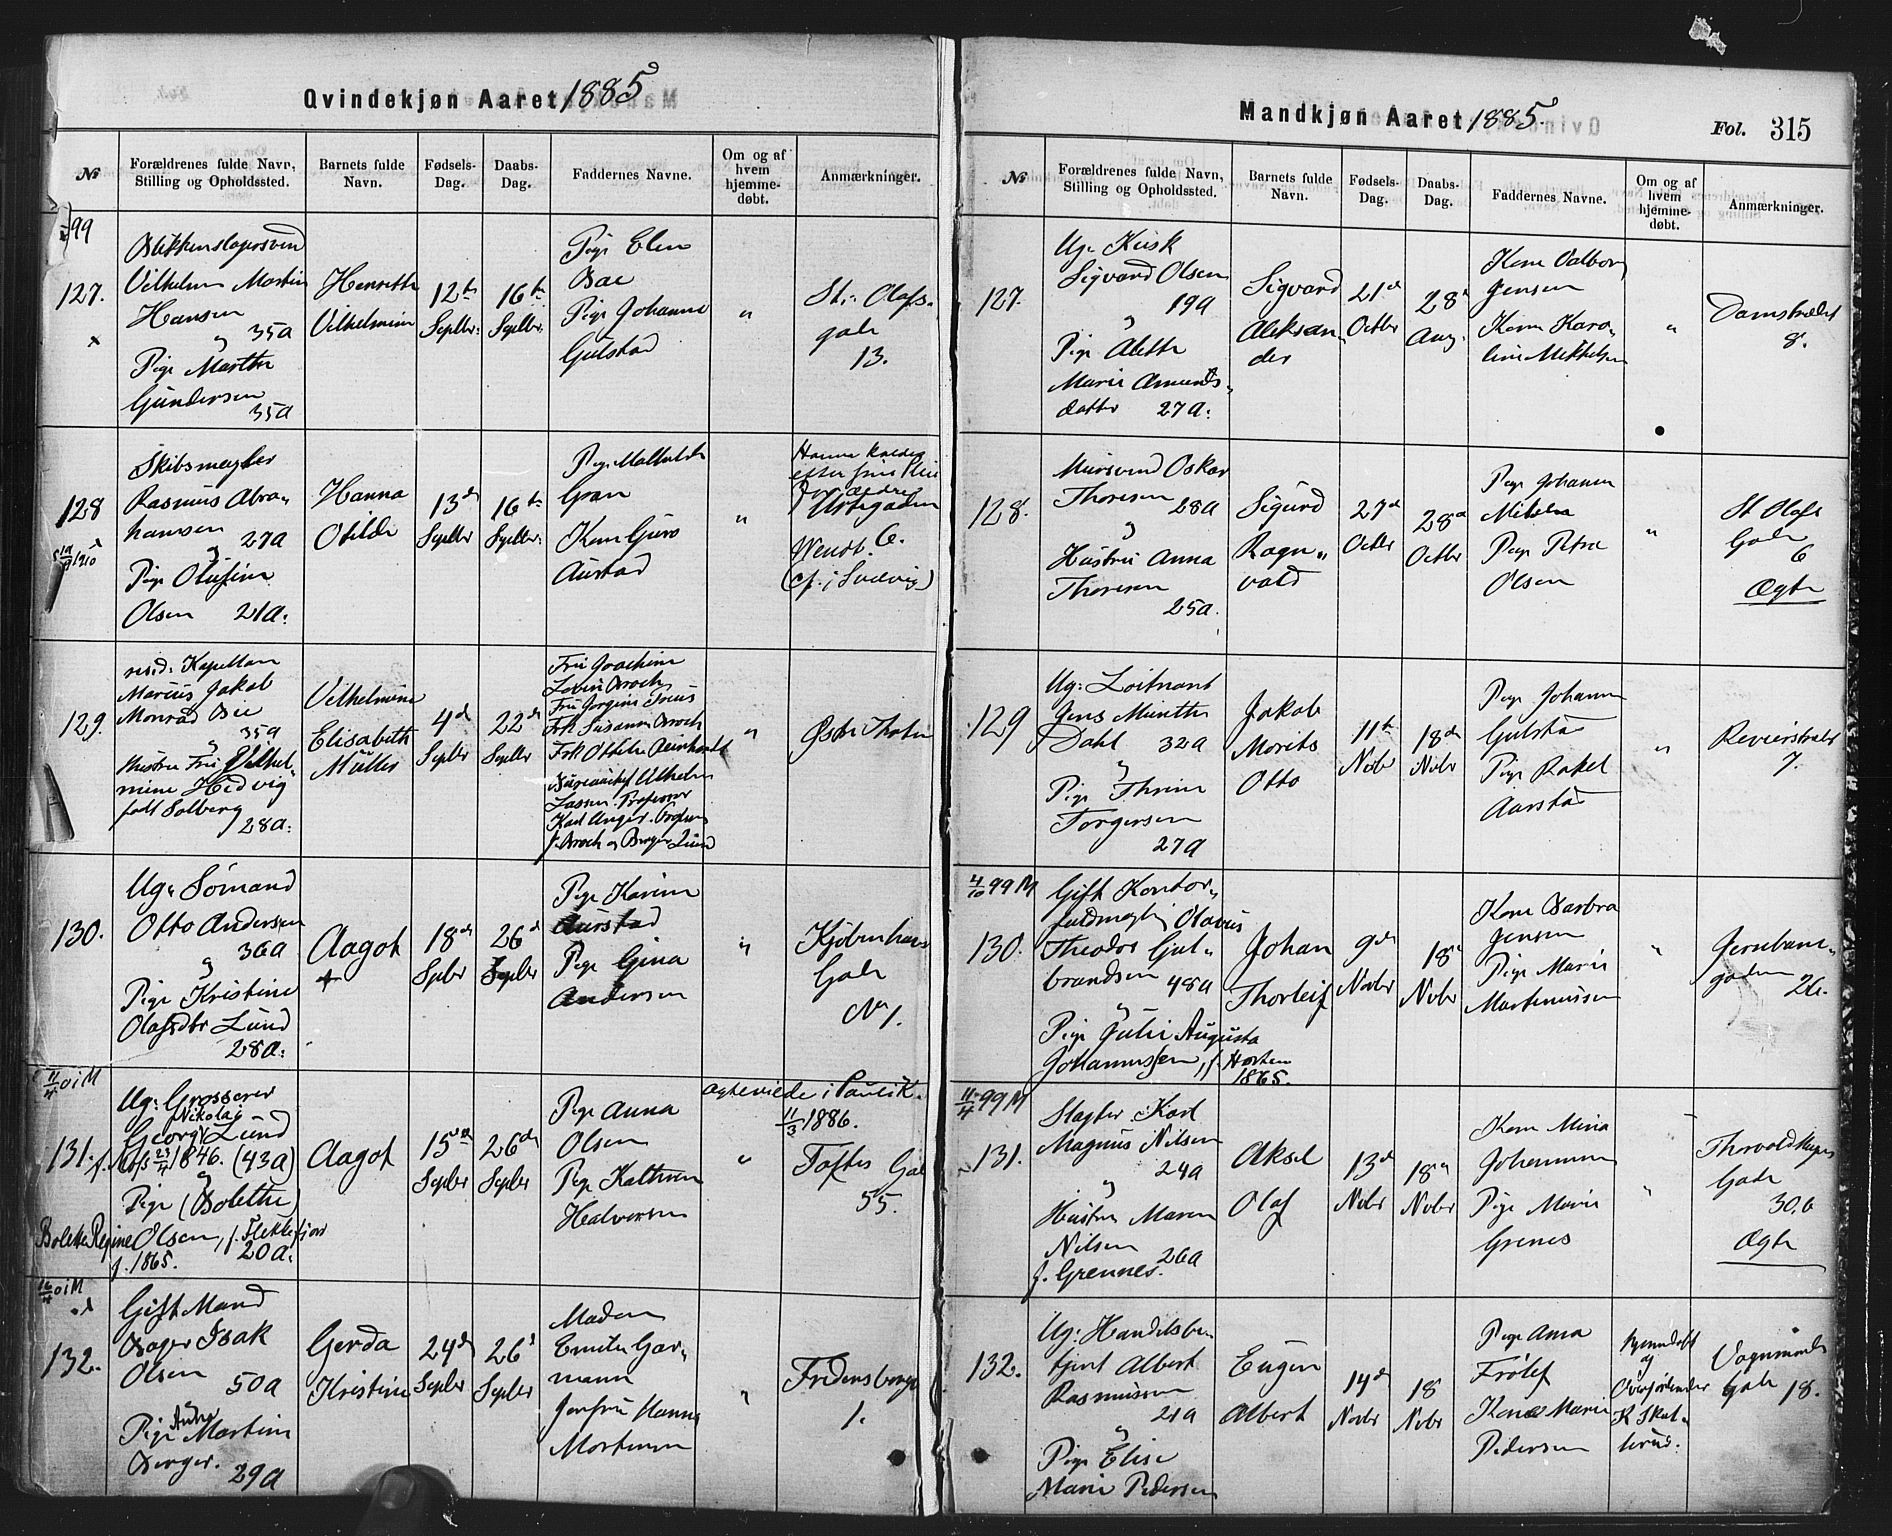 Qvindekjøn Aaret 1885
№
Forældrenes fulde Navn,
Stilling og Opholdssted.
Barnets fulde
Navn.
Fødsels-
Dag.
Daabs-
Dag.
Faddernes Navne.
Om og af
hvem
hjemme-
døbt.
Anmærkninger.
99
127.
Blikkenslagersvend
Vilhelm Martin
Hansen
35a
Pige Marthe
Gundersen
35a
Henrette
Vilhelmine
12te
Septbr:
16te
Septbr:
Pige Elen
Boe
Pige Johanne
Gulstad
"
St. Olafs-
gade
13.
128
Skibsmægler
Rasmus Abra-
hamsen
27a
Pige Olufine
Olsen 21a:
Hanna
Otilde
13de
Septbr
16te
Septbr:
Pige Mathilde
Gran
Kone Guro
Austad
"
6.
129.
resid. Kapellan
Marius Jakob
Monrad Bie
35a
Hustru Fru Vilhel-
mine Hedvig
født Solberg
28a:
Vilhelmine
Elisabeth
Müller
4de
Septbr
22de
Septbr
Fru Joachime
Lovise Broch
Fru Jorgine
Frk Susanne Broch
Frk Ottilie Reinhardt
Lassen. Professor
Karl Anger. Profess
J. Broch og Birger Lund
"
Østre Thoten
130.
Ug. Sømand
Otto Andersen
36a
og
Pige Kristine
Olafsdtr Lund
28a:
Aagot
18de
Septbr
26de
Septbr
Pige Karine
Aurstad
Pige Gina
Andersen
"
Kjøbenhavns
Gade
No 1.
11/4 01 M
131.
Ug: Grosserer
Nikolaj
Georg Lund
1846. (43a)
og
Pige (Bolethe
Bolette Regine Olsen, f. Flekkefjord
f. 1865. 20a.
Aagot
15de
Septbr
26de
Septbr
Pige Anna
Olsen
Pige Kathrine
Halvorsen
"
Ægteviede i Paulsk.
11/3 1886.
Toftes Gade
55.
16/4 01 M
132.
Gift Mand
Bager Isak
Olsen
50a
Pige Martine
Berger.
29a
Gerda
Kristine
24de
Septbr
26de
Septbr
Madam
Emilie Gar-
mann
Jomfru Hanna
Mortensen
"
Fredensborgv
1.
Mandkjøn Aaret 1885.
Fol. 315
№
Forældrenes fulde Navn,
Stilling og Opholdssted.
Barnets fulde
Navn.
Fødsels-
Dag.
Daabs-
Dag.
Faddernes Navne.
Om og af
hvem
hjemme-
døbt.
Anmærkninger.
127.
Ug. Kusk
Sigvard Olsen
19a
og
Pige Alette
Marie Amunds-
datter 27a.
Sigvard
Aleksan-
der
21de
Octbr
28de
Aug.
Kone Valborg
Jensen
Kone Karo-
line Mikkelsen
"
Damstrædet
8.
128.
Mursvend Oskar
Thoresen
28a
og
Hustru Anna
Thoresen
25a.
Sigurd
Ragn-
vald
27de
Octbr
28de
Octbr
Pige Johanne
Pige Petra
Olsen
"
St Olafs
Gade
6
Ægte
129
Ug: Løitnant
Jens Munthe
Dahl 32a
og
Pige Thrine
Torgersen
27a
Jakob
Morits
Otto
11te
Novbr
18de
Novbr
Pige Johanne
Gulstad
Pige Rakel
Aarstad
"
Revierstrædet
7.
4/10 99 M
130.
Gift Kontor-
fuldmægtig Olavus
Theodor Gul-
brandsen 48a
"
Pige Julie Augusta
Johannessen, f. Horten
1865.
Johan
Thorleif
9de
Novbr
18de
Novbr
Kone Barbra
Jensen
Pige Marie
Martinussen
"
Jernbane-
gaden
26.
11/4 99 M
131.
Slagter Karl
Magnus Nilsen
24a
og
Hustru Maren
Nilsen
26a
f. Grennes.
Aksel
Olaf
13de
Novbr
18de
Novbr
Kone Mina
Johannesen
Pige Marie
Grenes
"
Thorvald Meyers
Gade
30.b
Ægte
132.
Ug: Handelsbe-
tjent Albert
Rasmussen
21a
og
Pige Elise
Marie Pedersen
Eugen
Albert
14de
Novbr
18
Novbr
Pige Anna
Kone Marie
Pedersen
hjemmedøbt
og
Vognmands
Gade 18.